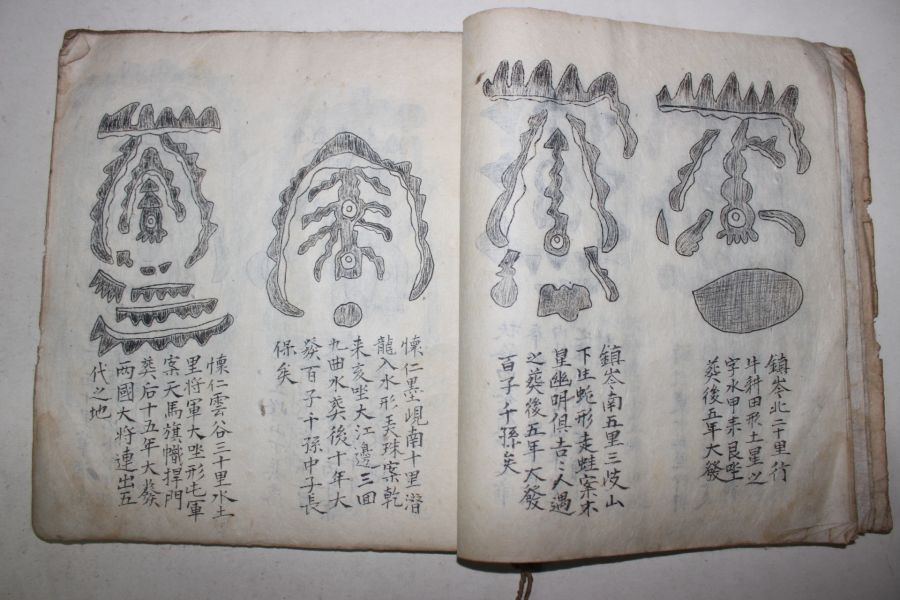 鎮岑北二十里行
牛耕田形土星之
字水甲来艮坐
葬後五年大發
鎮岑南五里三歧山
下生蛇形走蛙案
星幽明俱吉〻人遇
之葬後五年大發
百子千孫矣
懐仁墨峴南十里潛
龍入水形美珠案乾
来亥坐大江邊三回
九曲水葬後十年大
發百子千孫中子長
保矣
懐仁雲谷三十里水土
里将軍大坐形屯軍
案天馬旗幟捍門
葬后十五年大發
两國大将連出五
代之地